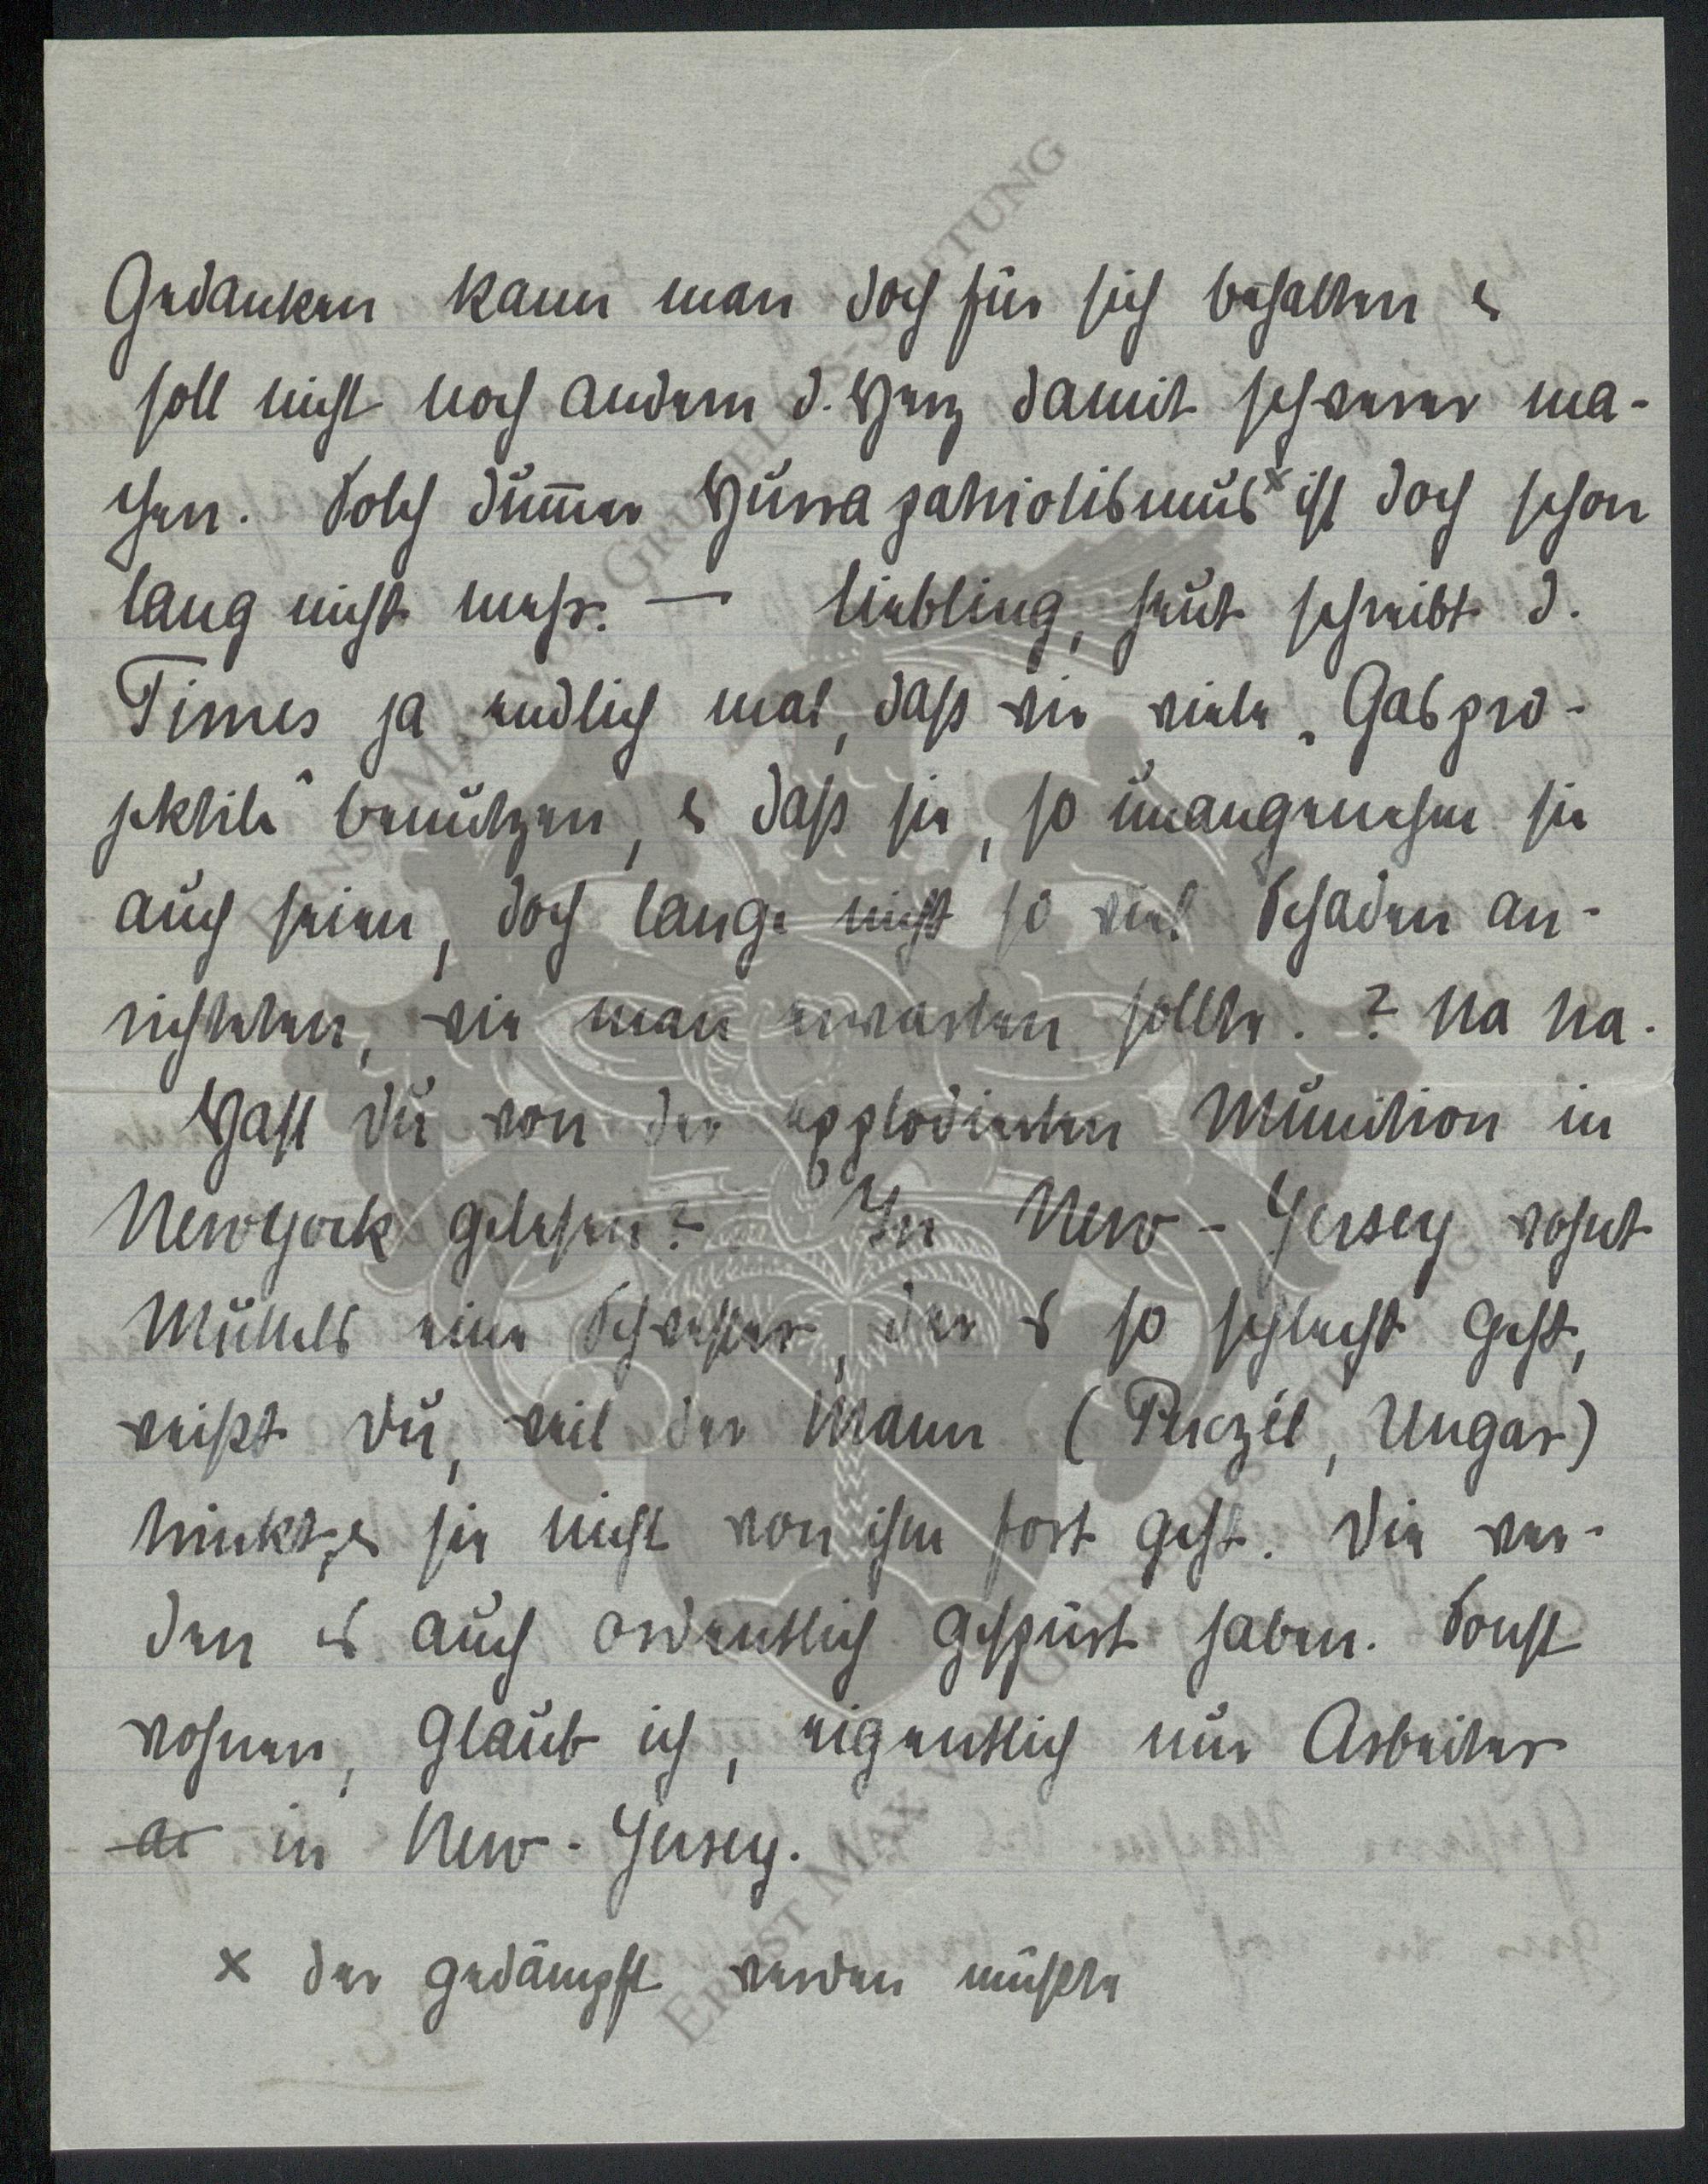 Gedanken kann man doch für sich behalten &
soll nicht noch andern d. Herz damit schwerer ma-
chen. Solch dum̅er Hurrapatriotismus x ist doch schon
lang nicht mehr. — Liebling, heut schreibt d.
Times ja endlich mal, daß wir viele „Gaspro-
jektile“ benützen, & daß sie, so unangenehm sie
auch seien, doch lange nicht so viel Schaden an-
richteten, wie man erwarten sollte. ? Na na.
Hast Du von der explodierten Munition in
Newyork gelesen? In New-Yersey wohnt
Müllels eine Schwester, der es so schlecht geht,
weißt Du, weil der Mann (Perczél, Ungar)
trinkt, & sie nicht von ihm fort geht. Die wer-
den es auch ordentlich gespürt haben. Sonst
wohnen, glaub ich, eigentlich nur Arbeiter
ar in New-Yersey.
x der gedämpft werden müßte
ERNST MAX VON GRUNELIUS-STIFTUNG
ERNST MAX VON GRUNELIUS-STIFTUNG